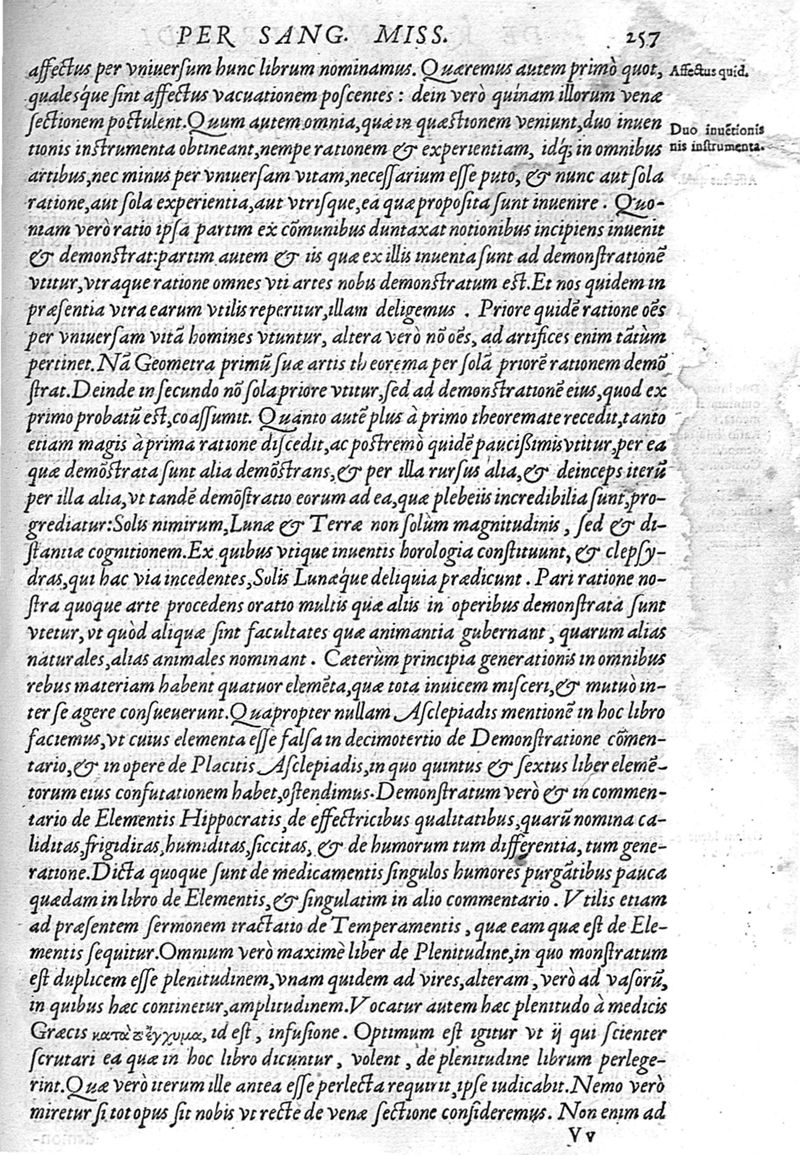 PER SANG. MISS. 257
affectus per vniuersum hunc librum nominamus. Quæremus autem primò quot,
Affectus quid.
qualesq́ue sint affectus vacuationem poscentes : dein verò quinam illorum venæ
sectionem postulent. Quum autem omnia, quæ in quæstionem veniunt, duo inuen
Duo inuẽtionis
tionis instrumenta obtineant, nempe rationem & experientiam, idq; in omnibus
nis instrumenta.
artibus, nec minus per vniuersam vitam, necessarium esse puto, & nunc aut sola
ratione, aut sola experientia, aut vtrisque, ea quæ proposita sunt inuenire. Quo-
niam verò ratio ipsa partim ex cõmunibus duntaxat notionibus incipiens inuenit
& demonstrat: partim autem & iis quæ ex illis inuenta sunt ad demonstrationẽ
vtitur, vtraque ratione omnes vti artes nobis demonstratum est. Et nos quidem in
præsentia vtra earum vtilis reperitur, illam deligemus . Priore quidẽ ratione oẽs
per vniuersam vitã homines vtuntur, altera verò nõ oẽs, ad artifices enim tãtùm
pertinet. Nã Geometra primũ suæ artis theorema per solã priorẽ rationem demõ
strat. Deinde in secundo nõ sola priore vtitur, sed ad demonstrationẽ eius, quod ex
primo probatũ est, coassumit. Quanto autẽ plus à primo theoremate recedit, tanto
etiam magis à prima ratione discedit, ac postremò quidẽ paucißimis vtitur, per ea
quæ demõstrata sunt alia demõstrans, & per illa rursus alia, & deinceps iterũ
per illa alia, vt tandẽ demõstratio eorum ad ea, quæ plebeiis incredibilia sunt, pro-
grediatur: Solis nimirum, Lunæ & Terræ non solùm magnitudinis, sed & di-
stantiæ cognitionem. Ex quibus vtique inuentis horologia constituunt, & clepsy-
dras, qui hac via incedentes, Solis Lunæq́ue deliquia prædicunt. Pari ratione no-
stra quoque arte procedens oratio multis quæ aliis in operibus demonstrata sunt
vtetur, vt quòd aliquæ sint facultates quæ animantia gubernant, quarum alias
naturales, alias animales nominant. Cæterùm principia generationis in omnibus
rebus materiam habent quatuor elemẽta, quæ tota inuicem misceri, & mutuò in-
ter se agere consueuerunt. Quapropter nullam Asclepiadis mentionẽ in hoc libro
faciemus, vt cuius elementa esse falsa in decimotertio de Demonstratione cõmen-
tario, & in opere de Placitis Asclepiadis, in quo quintus & sextus liber elemẽ-
torum eius confutationem habet, ostendimus. Demonstratum verò & in commen-
tario de Elementis Hippocratis, de effectricibus qualitatibus, quarũ nomina ca-
liditas, frigiditas, humiditas, siccitas, & de humorum tum differentia, tum gene-
ratione. Dicta quoque sunt de medicamentis singulos humores purgãtibus pauca
quædam in libro de Elementis, & singulatim in alio commentario. Vtilis etiam
ad præsentem sermonem tractatio de Temperamentis, quæ eam quæ est de Ele-
mentis sequitur. Omnium verò maximè liber de Plenitudine, in quo monstratum
est duplicem esse plenitudinem, vnam quidem ad vires, alteram, verò ad vasorũ,
in quibus hæc continetur, amplitudinem. Vocatur autem hæc plenitudo à medicis
Græcis κατὰ τὸ ἔγχυμα, id est, infusione. Optimum est igitur vt ij qui scienter
scrutari ea quæ in hoc libro dicuntur, volent, de plenitudine librum perlege-
rint. Quæ verò iterum ille antea esse perlecta requirit, ipse iudicabit. Nemo verò
miretur si tot opus sit nobis vt rectè de venæ sectione consideremus. Non enim ad
Vv